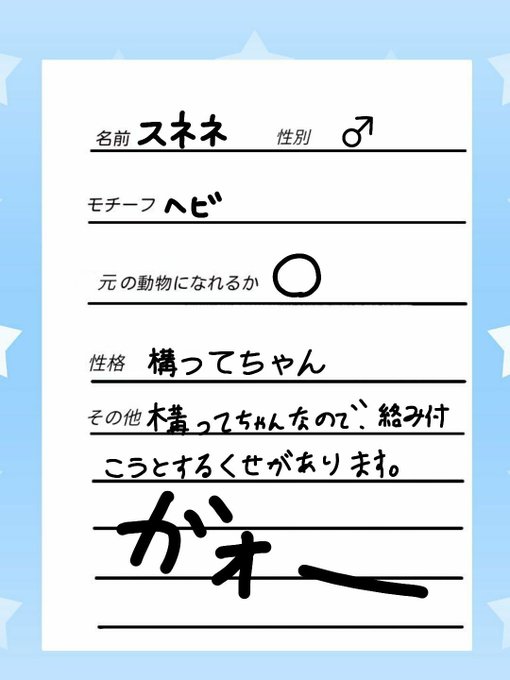 名前 スネネ 性別 ♂
モチーフ ヘビ
元の動物になれるか ○
性格 構ってちゃん
その他 構ってちゃんなので、絡み付
こうとするくせがあります。
がオー